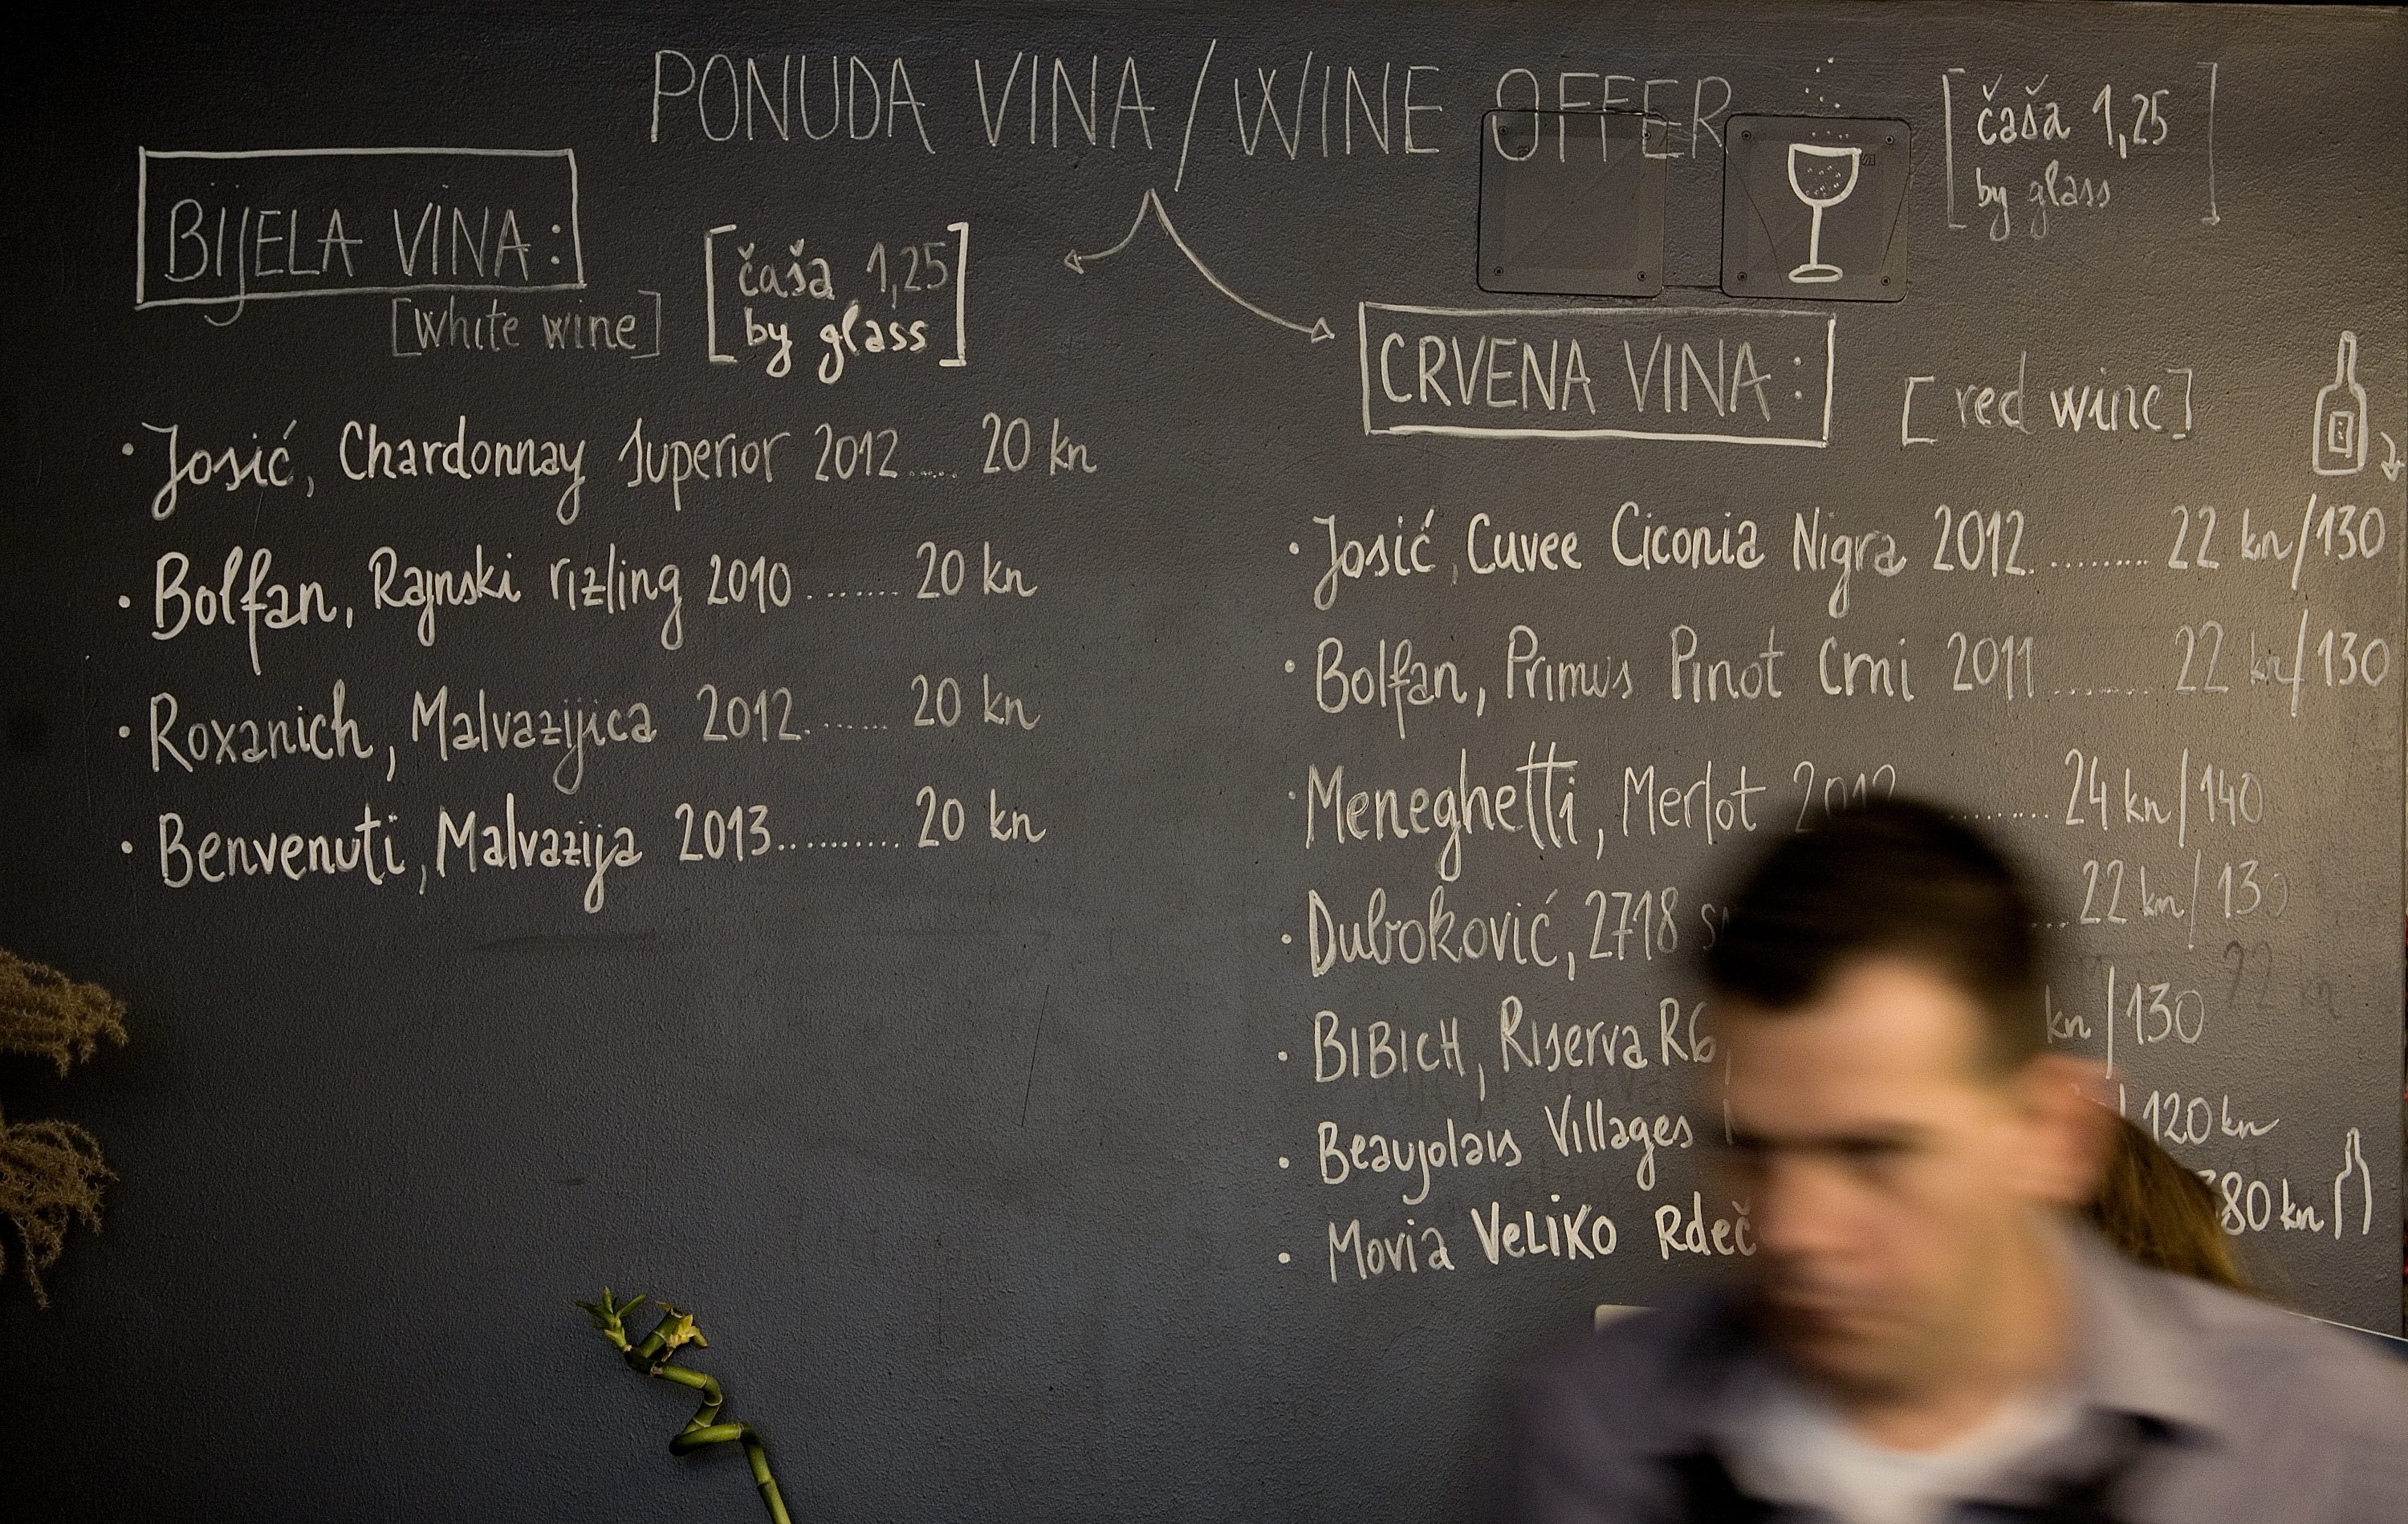 PONUDA VINA / WINE OFFER
[čaša 1,25
by glass]
BIJELA VINA:
[white wine]
[čaša 1,25
by glass]
• Josić, Chardonnay Superior 2012..... 20 kn
• Bolfan, Rajnski rizling 2010....... 20 kn
• Roxanich, Malvazijica 2012....... 20 kn
• Benvenuti, Malvazija 2013.......... 20 kn
CRVENA VINA:
[red wine]
• Josić, Cuvee Ciconia Nigra 2012.......... 22 kn/130
• Bolfan, Primus Pinot Crni 2011........ 22 kn/130
• Meneghetti, Merlot 2012 .......... 24 kn/140
• Duboković, 2718 ... 22 kn/130
• BIBICH, Riserva R6, kn/130
• Beaujolais Villages 120 kn
• Movia VELIKO Rdeč 80 kn